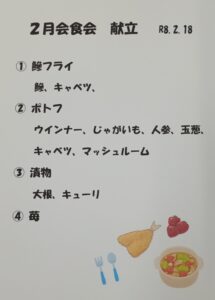 2月会食会　献立　R8.2.18
① 鯵フライ
鯵、キャベツ、
② ポトフ
ウインナー、じゃがいも、人参、玉葱、
キャベツ、マッシュルーム
③ 漬物
大根、キューリ
④ 苺